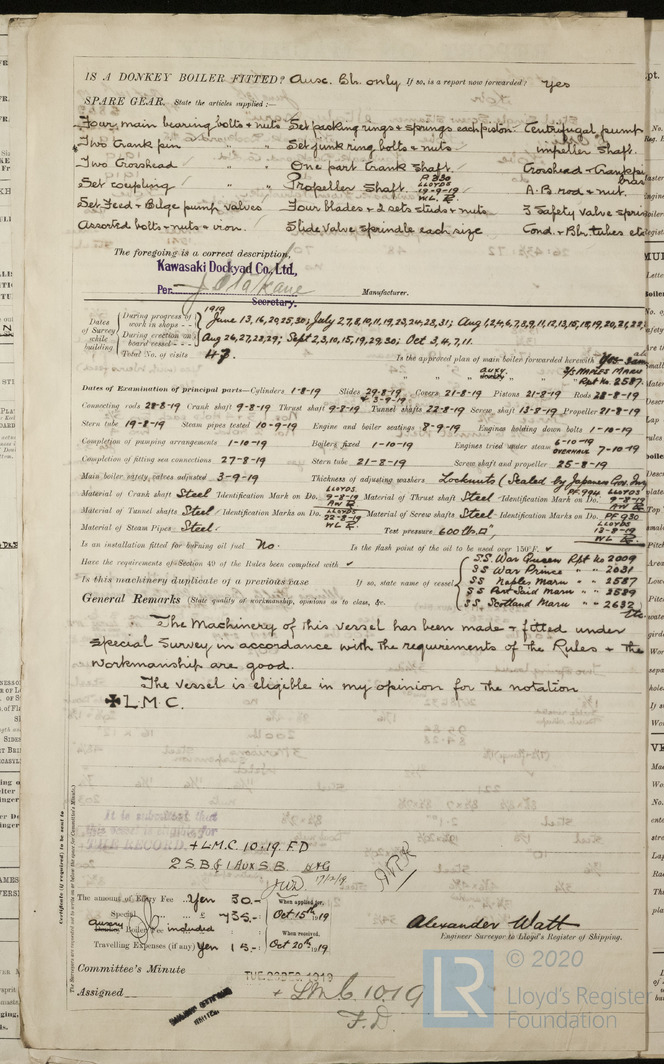 IS A DONKEY BOILER FITTED? Aux. Blr. only If so, is a report now forwarded? yes
SPARE GEAR. State the articles supplied:—
Four, main bearing bolts & nuts Set packing rings & springs each piston Centrifugal pump
Two Crank pin " " Set junk ring bolts & nuts impeller shaft.
Two Crosshead " " One part Crank Shaft. Crosshead & Crankpin
Set coupling " " Propeller Shaft. LLOYDS 19-9-19 W.L. A.B. rod & nut.
Set Feed & Bilge pump valves Four blades & 2 sets studs & nuts 3 Safety valve
Assorted bolts & nuts & iron. Slide valve spindle each size Cond. & Blr. tubes etc
The foregoing is a correct description,
Kawasaki Dockyad Co., Ltd.,
Per. Manufacturer.
Secretary.
Dates of Survey while building
During progress of work in shops - - 1919 June 13, 16, 20, 25, 30; July 2, 7, 8, 10, 11, 19, 23, 24, 28, 31; Aug 1, 2, 4, 6, 7, 8, 9, 11, 12, 13, 15, 18, 19, 20, 21, 22,
During erection on board vessel - - Aug 26, 27, 28, 29; Sept 2, 3, 10, 15, 19, 29, 30; Oct 3, 4, 7, 11.
Total No. of visits 47.
Is the approved plan of main boiler forwarded herewith
" " auxy. " " " S/S NAPLES MARU
Rpt No. 2587.
Dates of Examination of principal parts—Cylinders 1-8-19 Slides 29-8-19 & 3-9-19 Covers 21-8-19 Pistons 21-8-19 Rods 28-8-19
Connecting rods 28-8-19 Crank shaft 9-8-19 Thrust shaft 9-8-19 Tunnel shafts 22-8-19 Screw shaft 13-8-19 Propeller 21-8-19
Stern tube 19-8-19 Steam pipes tested 10-9-19 Engine and boiler seatings 8-9-19 Engines holding down bolts 1-10-19
Completion of pumping arrangements 1-10-19 Boilers fixed 1-10-19 Engines tried under steam 6-10-19 OVERHAUL 7-10-19
Completion of fitting sea connections 27-8-19 Stern tube 21-8-19 Screw shaft and propeller 25-8-19
Main boiler safety valves adjusted 3-9-19 Thickness of adjusting washers Locknuts (Sealed by Japanese Gov.
Material of Crank shaft Steel Identification Mark on Do. LLOYDS 9-8-19 Material of Thrust shaft Steel Identification Mark on Do. LLOYDS 9-8-19
Material of Tunnel shafts Steel Identification Marks on Do. LLOYDS 22-8-19 W.L. Material of Screw shafts Steel Identification Marks on Do. PF 930 LLOYDS 13-8-19 W.L.
Material of Steam Pipes Steel. Test pressure 600 lbs. □",
Is an installation fitted for burning oil fuel No. Is the flash point of the oil to be used over 150°F. ✓
Have the requirements of Section 49 of the Rules been complied with ✓
Is this machinery duplicate of a previous case If so, state name of vessel
S.S. War Queen Rpt No 2009
SS War Prince " " 2031
SS Naples Maru " " 2587
SS Port Said Maru " " 2589
SS. Scotland Maru " " 2632
General Remarks (State quality of workmanship, opinions as to class, &c.
The Machinery of this vessel has been made & fitted under
special Survey, in accordance with the requirements of the Rules & the
workmanship are good.
The vessel is eligible in my opinion for the notation
✠ L.M.C.
It is submitted that
this vessel is eligible for
THE RECORD. + L.M.C. 10.19. F.D
2 S.B. & 1 Aux S.B.
Certificate (if required) to be sent to
The amount of Entry Fee .. Yen 30.- When applied for,
Special .. £ 735.- Oct 15th 1919
auxy Boiler Fee included When received,
Travelling Expenses (if any) Yen 15.- Oct 20th 1919
Alexander Watt
Engineer Surveyor to Lloyd's Register of Shipping.
Committee's Minute TUE. 23 DEC. 1919
Assigned + LMC 10.19
F.D.
© 2020
LR Lloyd's Register
Foundation